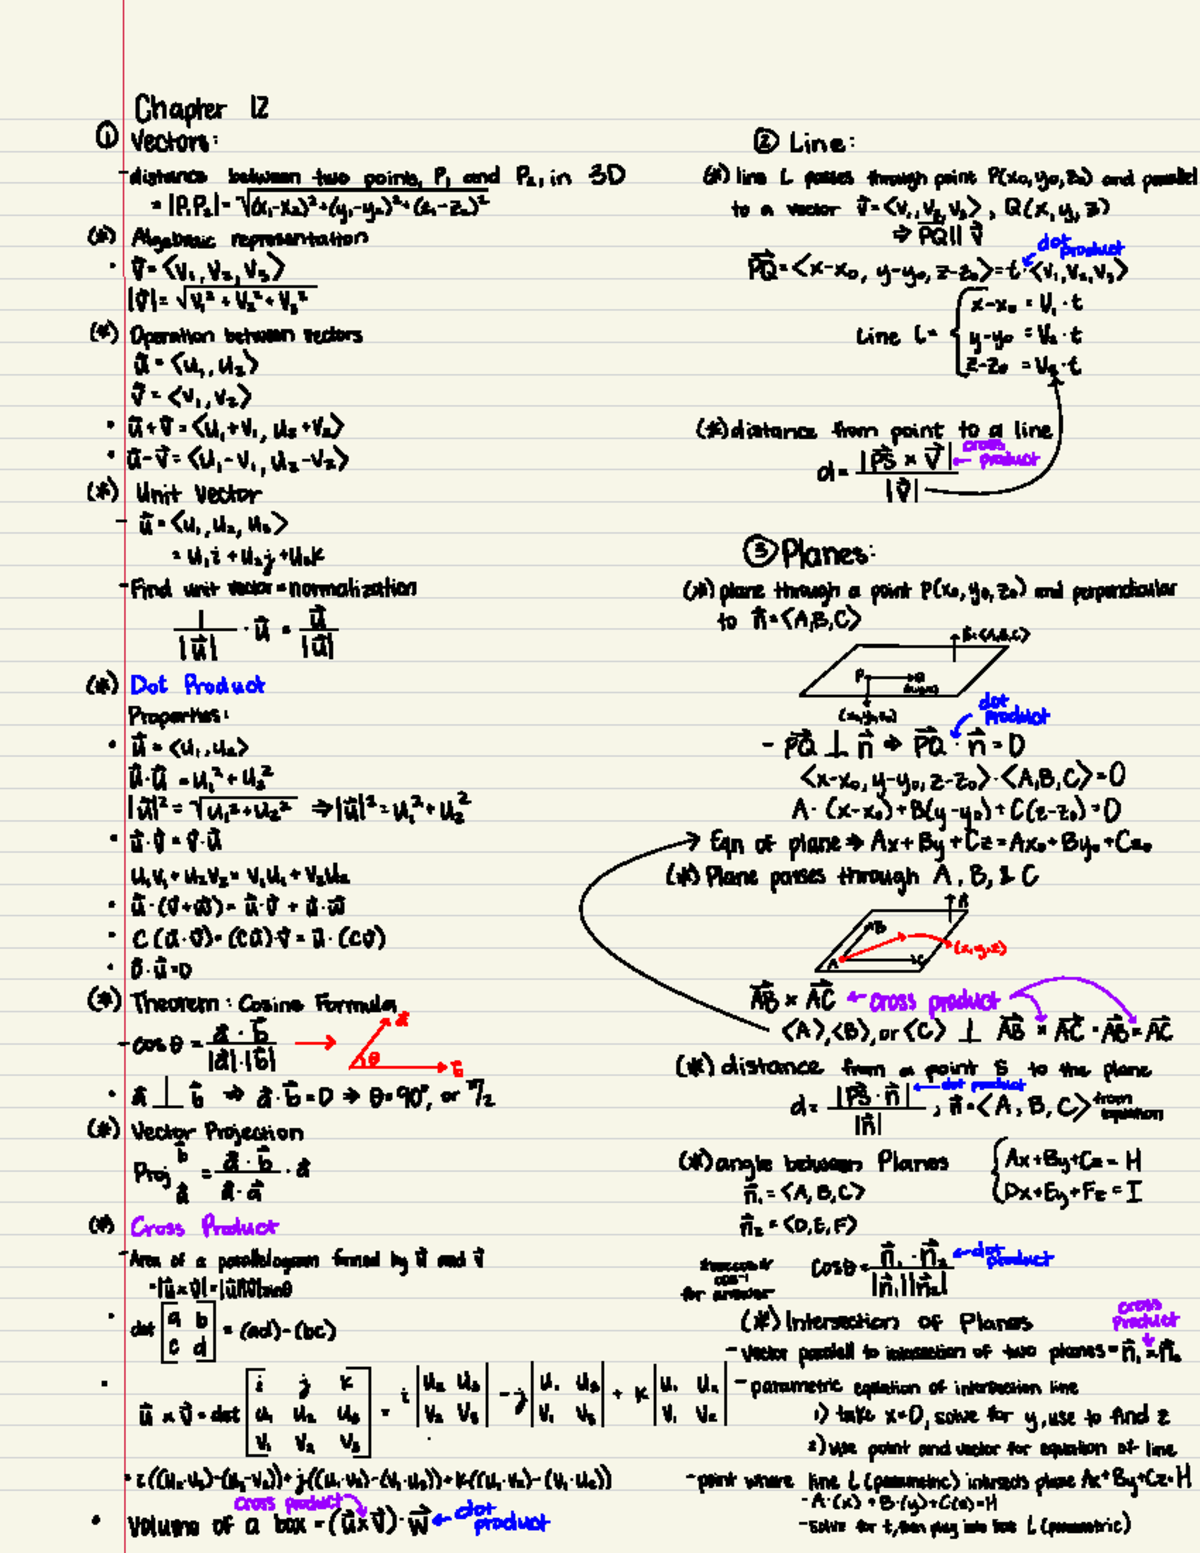 Chapter 12
① Vectors:
- distance between two points, P₁ and P₂, in 3D
= |P₁P₂| = √(x₁-x₂)²+(y₁-y₂)²+(z₁-z₂)²
(*) Algebraic representation
• v⃗ = <v₁, v₂, v₃>
|v⃗| = √v₁² + v₂² + v₃²
(*) Operation between vectors
u⃗ = <u₁, u₂>
v⃗ = <v₁, v₂>
• u⃗+v⃗ = <u₁+v₁, u₂+v₂>
• u⃗-v⃗ = <u₁-v₁, u₂-v₂>
(*) Unit Vector
- u⃗ = <u₁, u₂, u₃>
= u₁i + u₂j + u₃k
- Find unit vector = normalization
1/|u⃗| · u⃗ = u⃗/|u⃗|
(*) Dot Product
Properties:
• u⃗ = <u₁, u₂>
u⃗·u⃗ = u₁² + u₂²
|u⃗|² = √u₁²+u₂² ⇒ |u⃗|² = u₁² + u₂²
• u⃗·v⃗ = v⃗·u⃗
u₁v₁ + u₂v₂ = v₁u₁ + v₂u₂
• u⃗·(v⃗+w⃗) = u⃗·v⃗ + u⃗·w⃗
• c(u⃗·v⃗) = (cu⃗)·v⃗ = u⃗·(cv⃗)
• 0⃗·u⃗ = 0
(*) Theorem: Cosine Formula
- cos θ = a⃗·b⃗ / |a⃗|·|b⃗| → a⃗ θ b⃗
• a⃗ ⊥ b⃗ ⇒ a⃗·b⃗ = 0 ⇒ θ = 90°, or π/2
(*) Vector Projection
Proj b⃗ a⃗ = a⃗·b⃗ / a⃗·a⃗ · a⃗
(*) Cross Product
- Area of a parallelogram formed by u⃗ and v⃗
= |u⃗ x v⃗| = |u⃗||v⃗| sinθ
• det [a b c d] = (ad)-(bc)
• u⃗ x v⃗ = det [i j k u₁ u₂ u₃ v₁ v₂ v₃] = i |u₂ u₃ v₂ v₃| - j |u₁ u₃ v₁ v₃| + k |u₁ u₂ v₁ v₂|
cross product
• Volume of a box = (u⃗ x v⃗) · w⃗ ← dot product
② Line:
(*) line L passes through point P(x₀, y₀, z₀) and parallel
to a vector v⃗ = <v₁, v₂, v₃>, Q(x, y, z)
⇒ PQ || v⃗
dot product
PQ = <x-x₀, y-y₀, z-z₀> = t · <v₁, v₂, v₃>
x-x₀ = v₁ · t
Line L = y-y₀ = v₂ · t
z-z₀ = v₃ · t
(*) distance from point to a line
d = |PS x v⃗| / |v⃗| ← cross product
③ Planes:
(*) plane through a point P(x₀, y₀, z₀) and perpendicular
to n⃗ = <A, B, C>
n⃗ = <A, B, C>
P Q
(x₀, y₀, z₀)
dot product
- PQ ⊥ n⃗ ⇒ PQ · n⃗ = 0
<x-x₀, y-y₀, z-z₀> · <A, B, C> = 0
A · (x-x₀) + B(y-y₀) + C(z-z₀) = 0
Eqn of plane ⇒ Ax + By + Cz = Ax₀ + By₀ + Cz₀
(*) Plane passes through A, B, & C
n⃗
B
A C (x, y, z)
AB x AC ← cross product
<A>, <B>, or <C> ⊥ AB x AC · AB x AC
(*) distance from a point S to the plane
d = |PS · n⃗| / |n⃗| ← dot product, n⃗ = <A, B, C> ← from equation
(*) angle between Planes { Ax+By+Cz = H
n⃗₁ = <A, B, C> Dx+Ey+Fz = I
n⃗₂ = <D, E, F>
cosθ = n⃗₁ · n⃗₂ / |n⃗₁||n⃗₂| ← dot product
cos⁻¹
for answer
(*) Intersection of Planes
cross product
- vector parallel to intersection of two planes = n⃗₁ x n⃗₂
- parametric equation of intersection line
1) take x=0, solve for y, use to find z
2) use point and vector for equation of line
- point where line L (parametric) intersects plane Ax+By+Cz=H
- A·(x) + B·(y) + C(z) = H
- solve for t, then plug into line L (parametric)